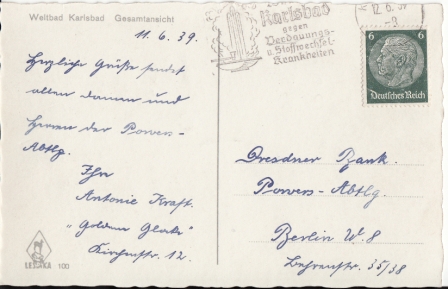 Weltbad Karlsbad Gesamtansicht
11.6.39.
Herzliche Grüße sendet
allen Damen und
Herren der Powers-
Abtlg.
Ihr
Antonie Kraft.
"Goldene Glocke"
Kirchenstr. 12.
LEDAKA 100
Karlsbad
gegen
Verdauungs-
u. Stoffwechsel-
Krankheiten
12.6.39
-8
6 6
Deutsches Reich
Dresdner Bank.
Powers-Abtlg.
Berlin W. 8
Behrenstr. 35/38